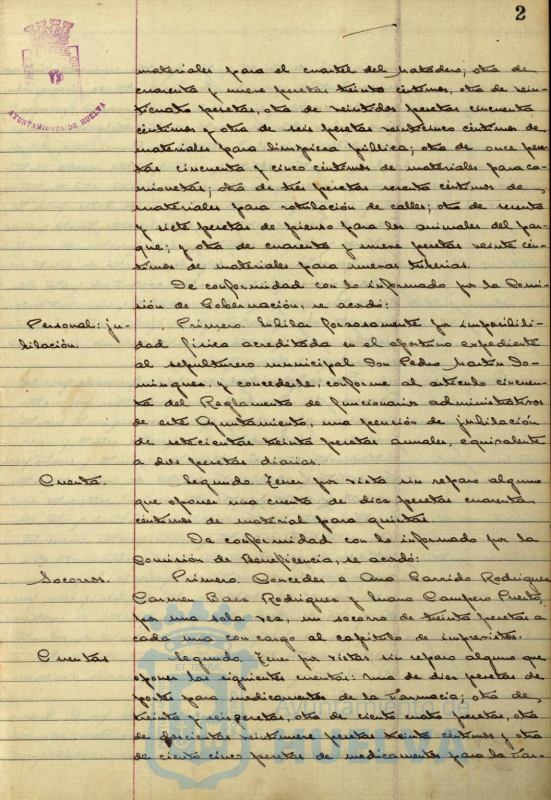 2
AYUNTAMIENTO DE HUELVA
materiales para el cuartel del Matadero; otra de
cuarenta y nueve pesetas treinta céntimos, otra de vein-
ticuatro pesetas, otra de veintidos pesetas cincuenta
céntimos y otra de seis pesetas veinticinco céntimos de
materiales para limpieza pública; otra de once pese-
tas cincuenta y cinco céntimos de materiales para ca-
mionetas; otra de tres pesetas sesenta céntimos de
materiales para rotulación de calles; otra de sesenta
y siete pesetas de pienso para los animales del par-
que; y otra de cuarenta y nueve pesetas veinte cén-
timos de materiales para nuevas tuberias.
De conformidad con lo informado por la Comi-
sión de Gobernación, se acordó:
Personal: ju-
bilación.
Primero. Jubilar forzosamente por imposibili-
dad física acreditada en el oportuno expediente
al sepulturero municipal Don Pedro Martin Do-
minguez, y concederle, conforme al artículo cincuen-
ta del Reglamento de funcionarios administrativos
de este Ayuntamiento, una pensión de jubilación
de setecientas treinta pesetas anuales, equivalente
a dos pesetas diarias.
Cuenta.
Segundo. Tener por vista sin reparo alguno
que oponer una cuenta de diez pesetas cuarenta
céntimos de material para quintas
De conformidad con lo informado por la
Comisión de Beneficencia, se acordó:
Socorros.
Primero. Conceder a Ana Garrido Rodriguez
Carmen Baez Rodriguez y Juana Campero Puerto,
por una sola vez, un socorro de treinta pesetas a
cada una con cargo al capitulo de imprevistos.
Cuentas
Segundo. Tener por vistas sin reparo alguno que
oponer las siguientes cuentas: una de diez pesetas de
portes para medicamentos de la Farmacia; otra de
treinta y seis pesetas, otra de ciento cuatro pesetas, otra
de doscientas veintinueve pesetas treinta céntimos y otra
de ciento cinco pesetas de medicamentos para la Far-
Ayuntamiento de
HUELVA